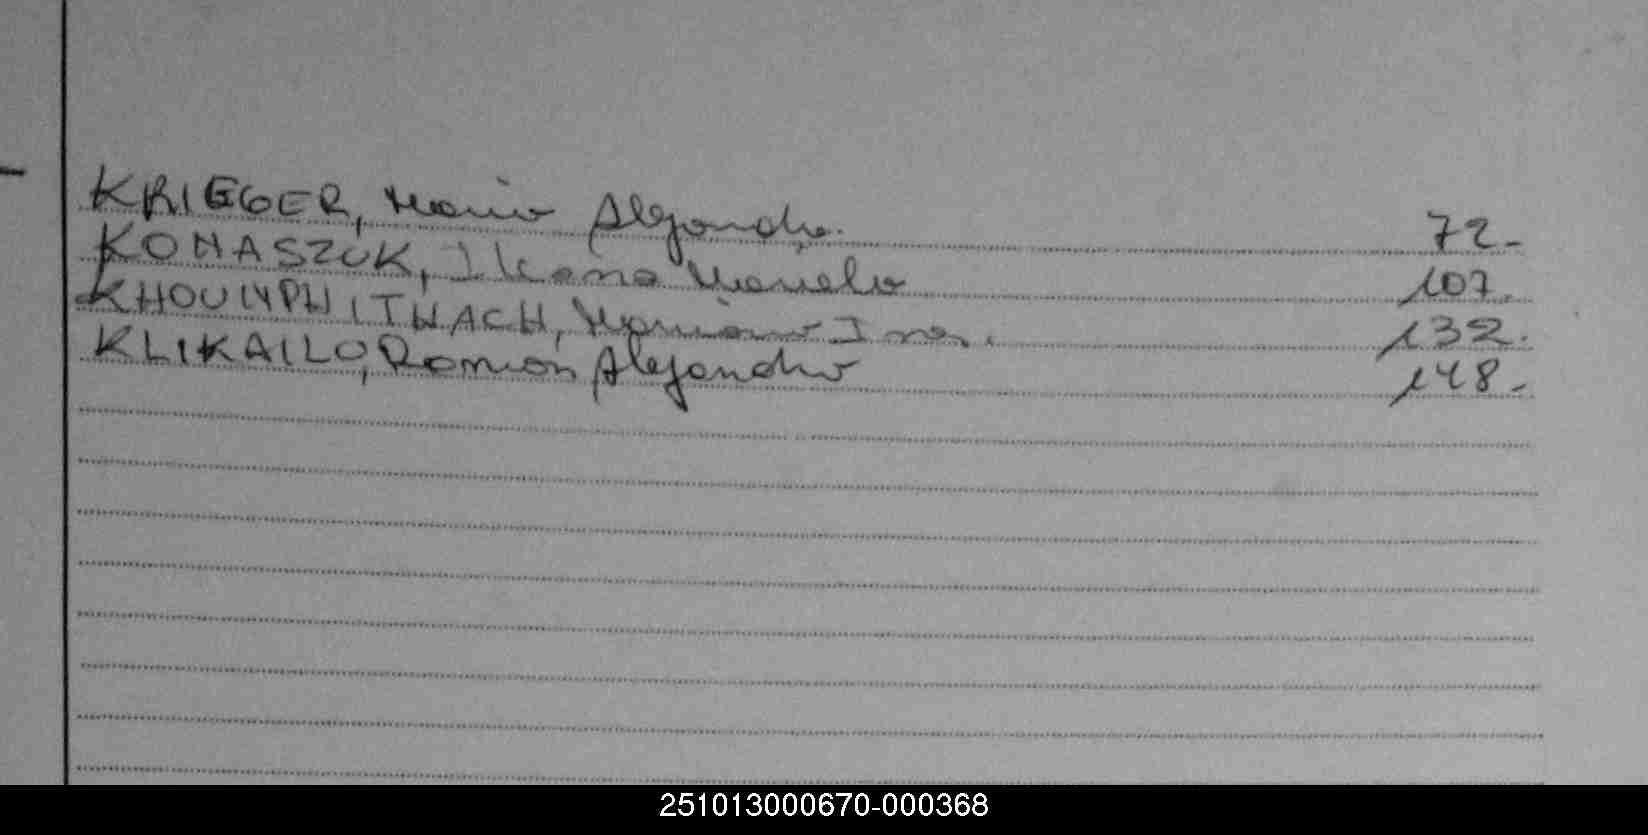 KRIEGER, Mario Alejandro. 72.-
KOMASZUK, Ileana Marcela 107.
KHOUMPHITHACH, Mariano Ines. 132.
KLIKAILO, Ramon Alejandro 148.-
251013000670-000368